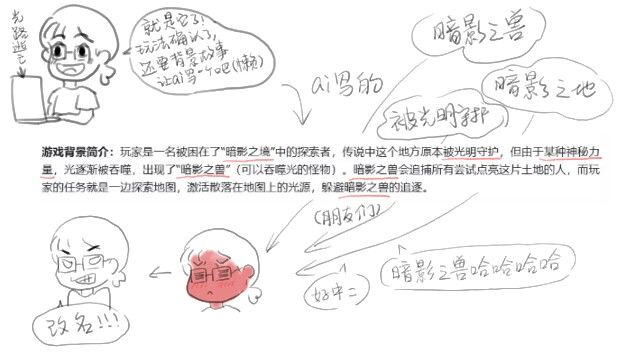 光路逃亡
就是它了!
玩法确认了,
还要背景故事
让ai写一个吧(懒)
ai写的
暗影之兽
暗影之地
被光明守护
游戏背景简介:玩家是一名被困在了“暗影之境”中的探索者,传说中这个地方原本被光明守护,但由于某种神秘力
量,光逐渐被吞噬,出现了“暗影之兽”(可以吞噬光的怪物)。暗影之兽会追捕所有尝试点亮这片土地的人,而玩
家的任务就是一边探索地图,激活散落在地图上的光源,躲避暗影之兽的追逐。
(朋友们)
好中二
暗影之兽哈哈哈哈哈
改名!!!